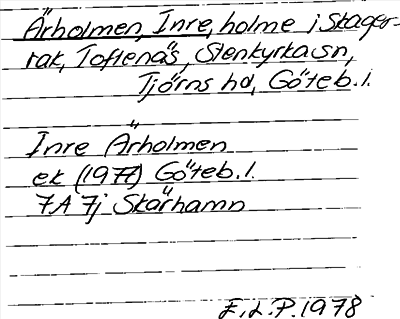 Ärholmen, Inre, holme i Skager-
rak, Toftenäs, Stenkyrka sn,
Tjörns hd, Göteb. l.
Inre Ärholmen
ek (1977) Göteb. l.
7A 7j Skärhamn
E.L.P. 1978